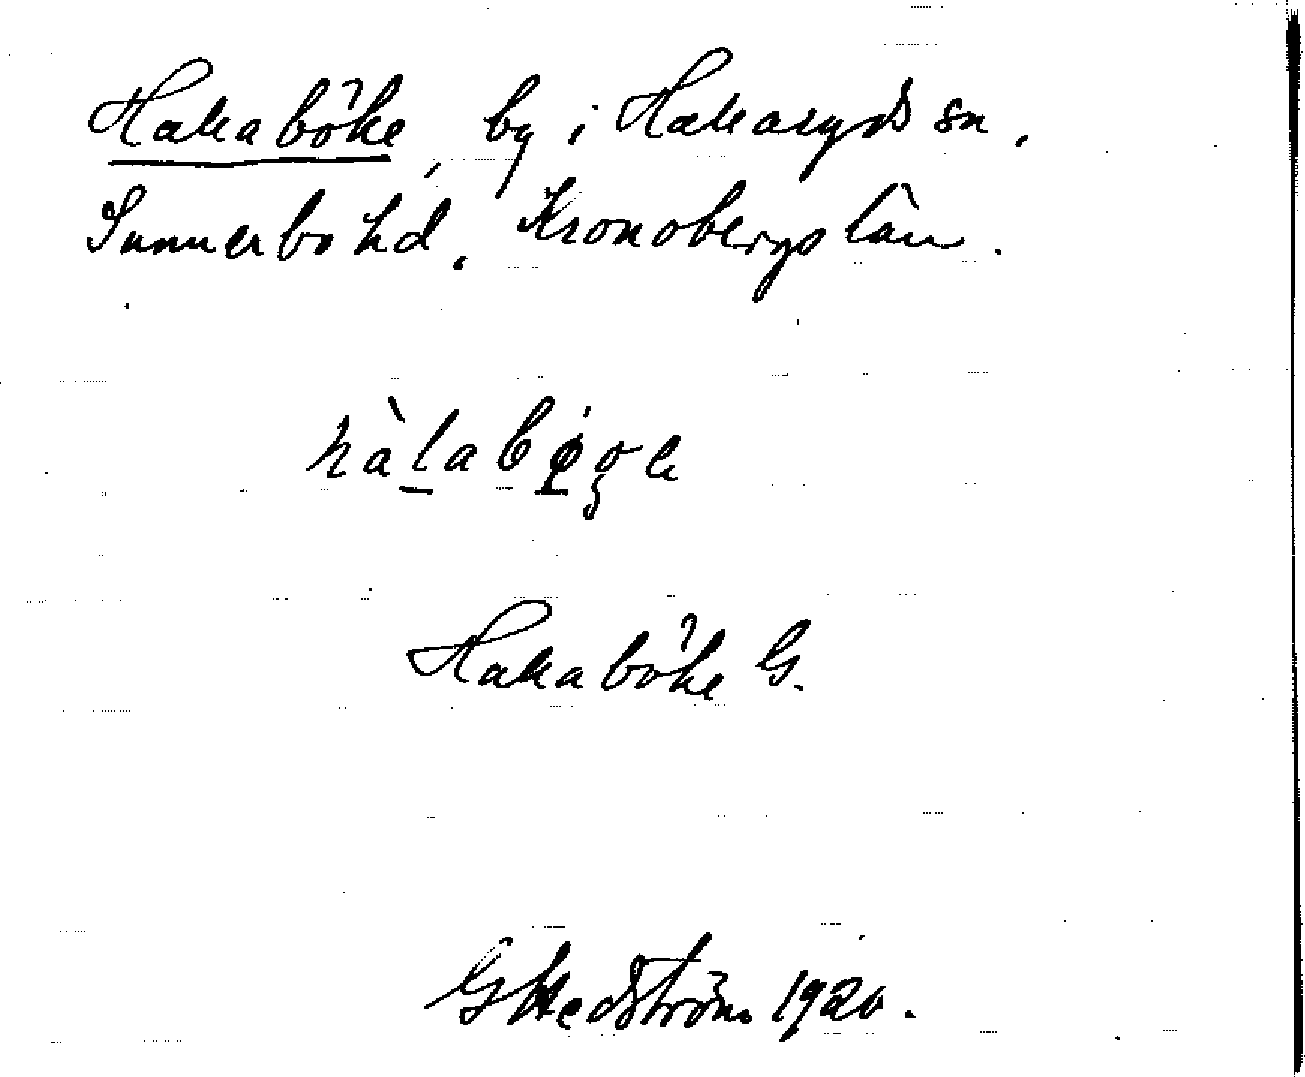 Hakaböke, by i Hakaryds sn.
Sunnerbo hd. Kronobergs län.
Hakaböke G.
G Hedström 1920.